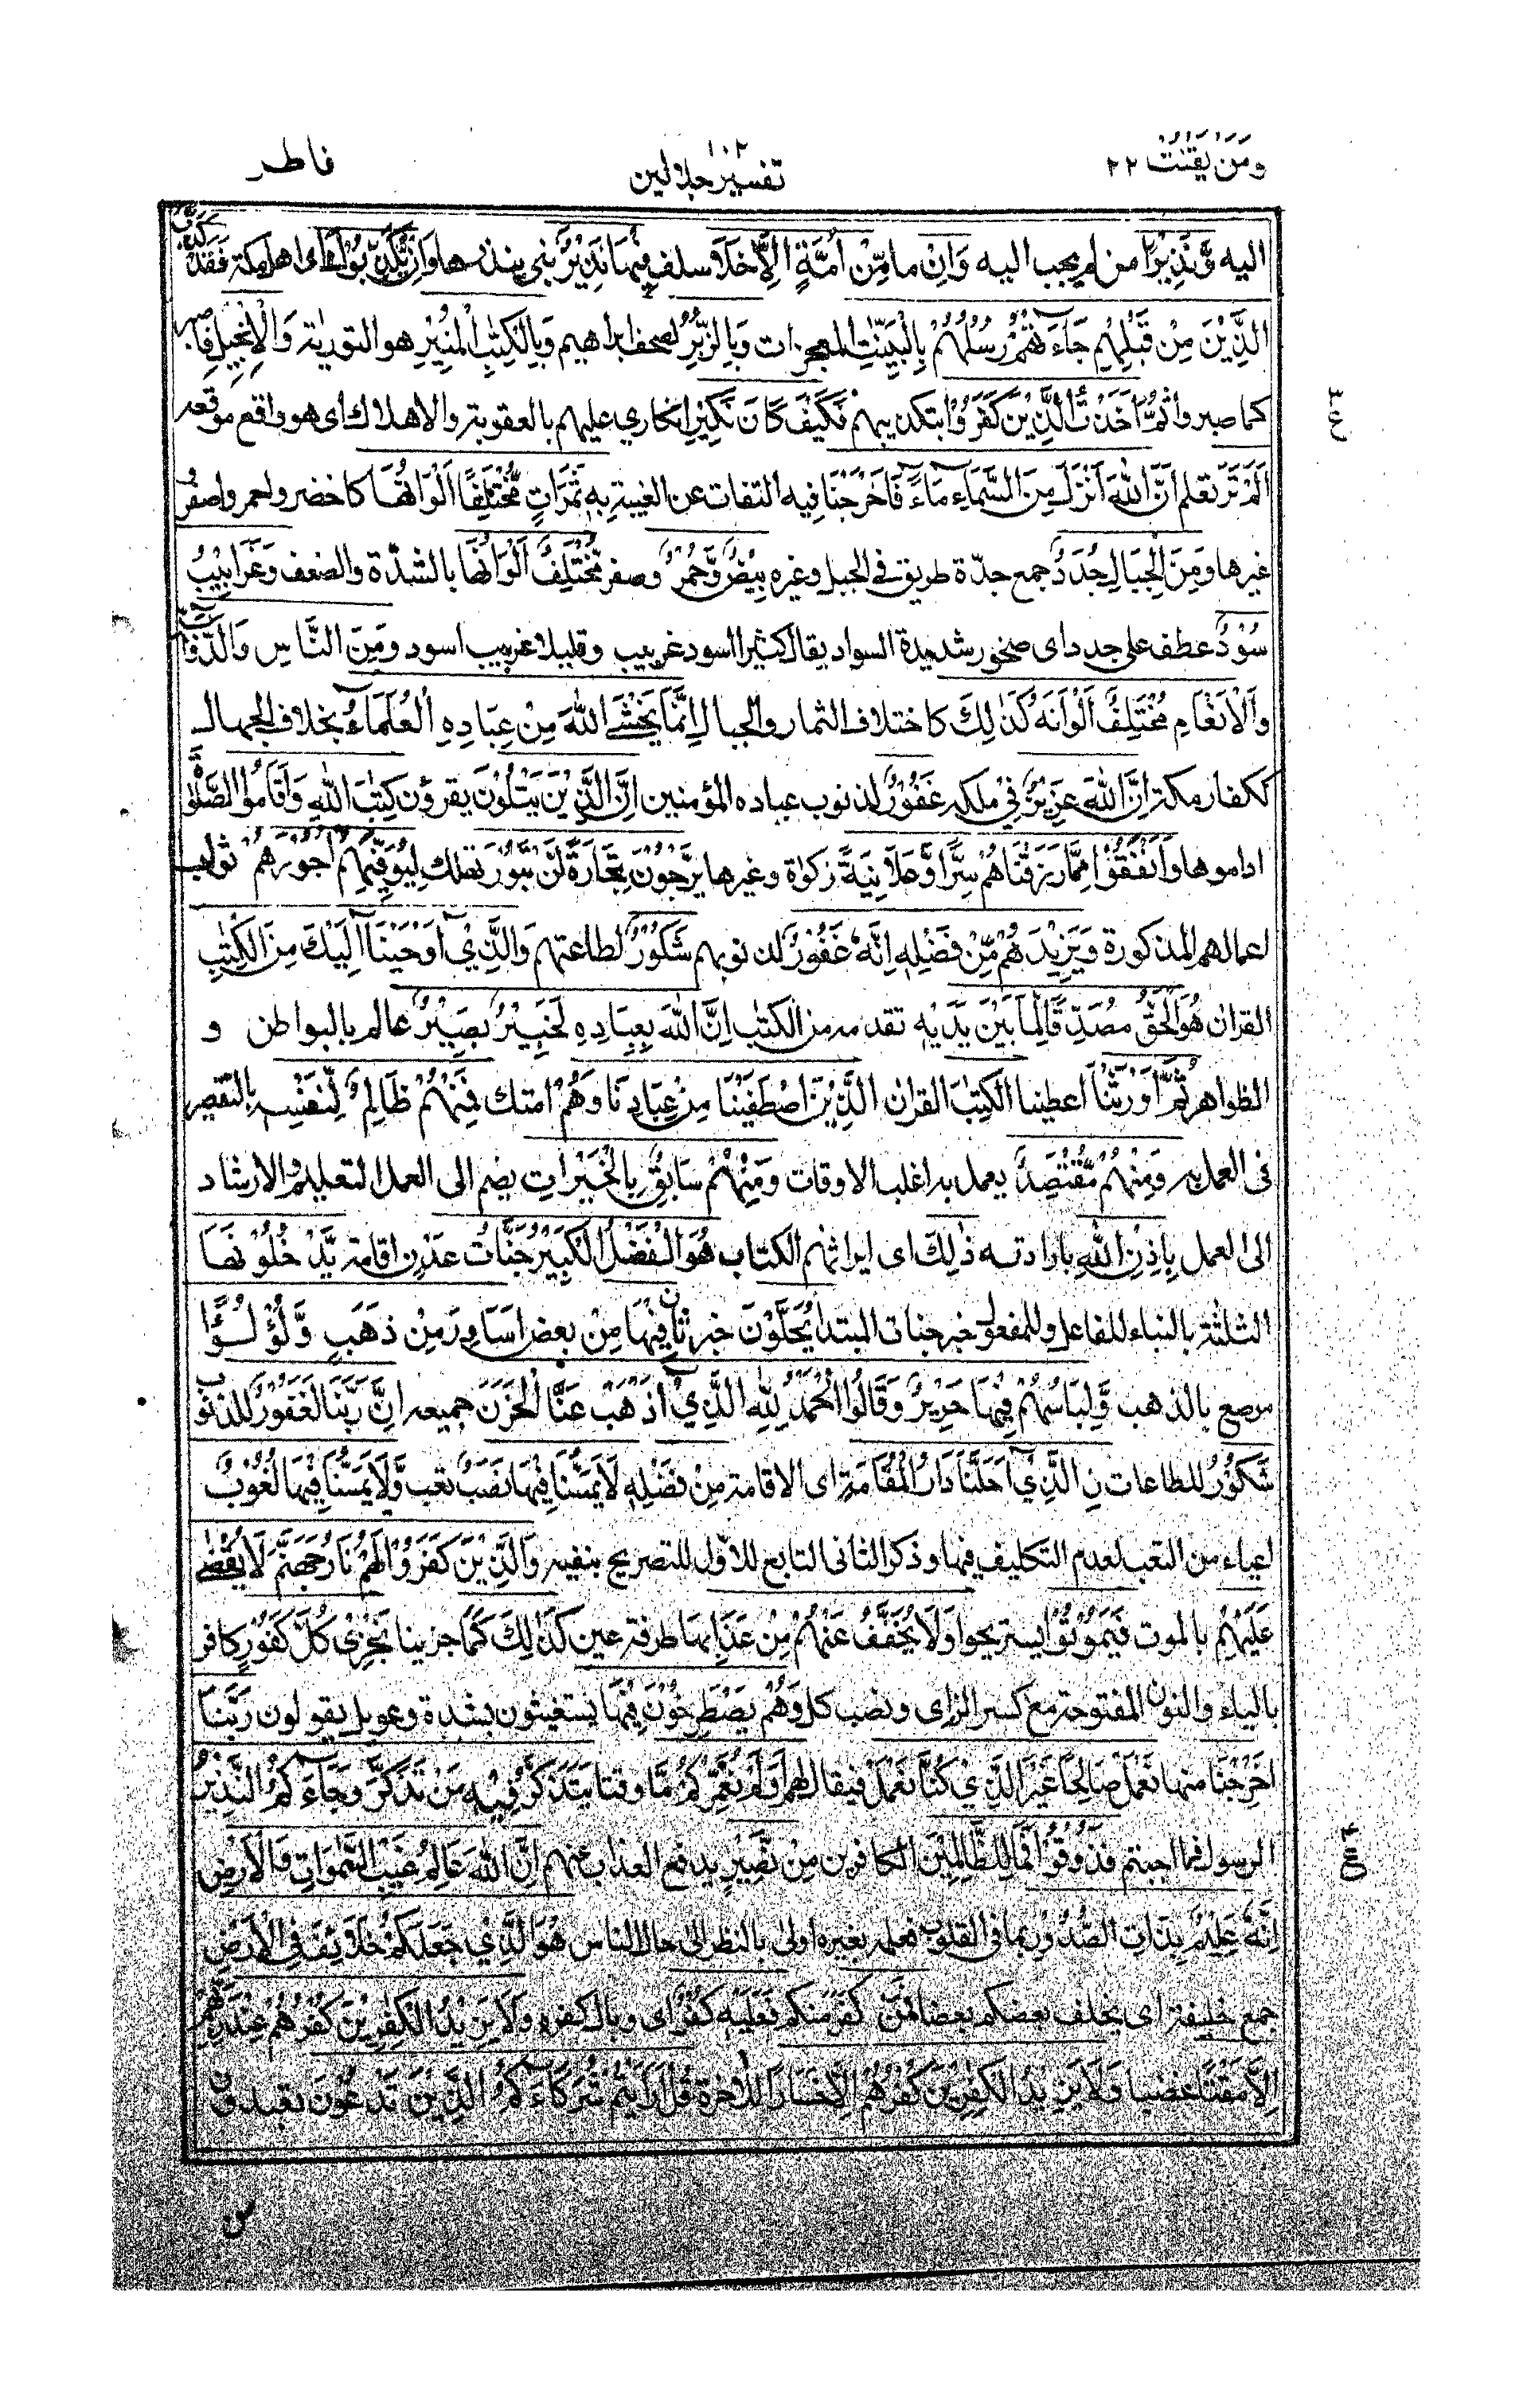 ومن يقنت ٢٢
١٠٢
تفسير جلالين
فاطر
اليه وَّنَذِيْرًا من لم يجب اليه وَاِنْ ما مِّنْ اُمَّةٍ اِلَّا خَلَا سلف فِيْهَا نَذِيْرٌ نبى ينذرها وَاِنْ يُّكَذِّبُوْكَ اى اهل مكة فَقَدْ كَذَّبَ
الَّذِيْنَ مِنْ قَبْلِهِمْ جَآءَتْهُمْ رُسُلُهُمْ بِالْبَيِّنٰتِ المعجزات وَبِالزُّبُرِ لصحف ابراهيم وَبِالْكِتٰبِ الْمُنِيْرِ هو التورية وَالْاِنْجِيْلِ فاصبر
كما صبروا ثُمَّ اَخَذْتُ الَّذِيْنَ كَفَرُوْا بتكذيبهم فَكَيْفَ كَانَ نَكِيْرِ انكاري عليهم بالعقوبة والاهلاك اى هو واقع موقعه
اَلَمْ تَرَ تعلم اَنَّ اللهَ اَنْزَلَ مِنَ السَّمَآءِ مَآءً فَاَخْرَجْنَا فيه التفات عن الغيبة بِهٖ ثَمَرَاتٍ مُّخْتَلِفًا اَلْوَانُهَا كاخضر واحمر واصفر و
غيرها وَمِنَ الْجِبَالِ جُدَدٌ جمع جدّة طريق فى الجبل وغيره بِيْضٌ وَّحُمْرٌ وصفر مُّخْتَلِفٌ اَلْوَانُهَا بالشدّة والضعف وَغَرَابِيْبُ
سُوْدٌ عطف على جدد اى صخور شديدة السواد يقال كثيرا اسود غربيب وقليلا غربيب اسود وَمِنَ النَّاسِ وَالدَّوَآبِّ
وَالْاَنْعَامِ مُخْتَلِفٌ اَلْوَانُهٗ كَذٰلِكَ كاختلاف الثمار والجبال اِنَّمَا يَخْشَى اللهَ مِنْ عِبَادِهِ الْعُلَمَاءُ بخلاف الجهال
ككفار مكة اِنَّ اللهَ عَزِيْزٌ فى ملكه غَفُوْرٌ لذنوب عباده المؤمنين اِنَّ الَّذِيْنَ يَتْلُوْنَ يقرؤن كِتٰبَ اللهِ وَاَقَامُوا الصَّلٰوةَ
اداموها وَاَنْفَقُوْا مِمَّا رَزَقْنَاهُمْ سِرًّا وَّعَلَانِيَةً زكوٰة وغيرها يَرْجُوْنَ تِجَارَةً لَّنْ تَبُوْرَ تهلك لِيُوَفِّيَهُمْ اُجُوْرَهُمْ ثواب
اعمالهم المذكورة وَيَزِيْدَهُمْ مِّنْ فَضْلِهٖ اِنَّهٗ غَفُوْرٌ لذنوبهم شَكُوْرٌ لطاعتهم وَالَّذِيْٓ اَوْحَيْنَآ اِلَيْكَ مِنَ الْكِتٰبِ
القران هُوَ الْحَقُّ مُصَدِّقًا لِّمَا بَيْنَ يَدَيْهِ تقدمه من الكتب اِنَّ اللهَ بِعِبَادِهٖ لَخَبِيْرٌ بَصِيْرٌ عالم بالبواطن و
الظواهر ثُمَّ اَوْرَثْنَا اعطينا الْكِتٰبَ القران الَّذِيْنَ اصْطَفَيْنَا مِنْ عِبَادِنَا وَهُمْ امتك فَمِنْهُمْ ظَالِمٌ لِّنَفْسِهٖ بالتقصير
فى العمل به وَمِنْهُمْ مُّقْتَصِدٌ يعمل به اغلب الاوقات وَمِنْهُمْ سَابِقٌ بِالْخَيْرَاتِ يضم الى العمل التعليم والارشاد
الى العمل بِاِذْنِ اللهِ بارادته ذٰلِكَ اى ايراثهم الكتاب هُوَ الْفَضْلُ الْكَبِيْرُ جَنّٰتُ عَدْنٍ اقامة يَدْخُلُوْنَهَا
الثلثة بالبناء للفاعل وللمفعول خبر جنات المبتدأ يُحَلَّوْنَ خبر ثان فِيْهَا مِنْ بعض اَسَاوِرَ مِنْ ذَهَبٍ وَّلُؤْلُؤًا
مرصع بالذهب وَلِبَاسُهُمْ فِيْهَا حَرِيْرٌ وَقَالُوا الْحَمْدُ لِلّٰهِ الَّذِيْٓ اَذْهَبَ عَنَّا الْحَزَنَ جميعه اِنَّ رَبَّنَا لَغَفُوْرٌ للذنوب
شَكُوْرٌ للطاعات نِ الَّذِيْٓ اَحَلَّنَا دَارَ الْمُقَامَةِ اى الاقامة مِنْ فَضْلِهٖ لَا يَمَسُّنَا فِيْهَا نَصَبٌ تعب وَّلَا يَمَسُّنَا فِيْهَا لُغُوْبٌ
اعياء من التعب لعدم التكليف فيها وذكر الثانى التابع للاوّل للتصريح بنفيه وَالَّذِيْنَ كَفَرُوْا لَهُمْ نَارُ جَهَنَّمَ لَا يُقْضٰى
عَلَيْهِمْ بالموت فَيَمُوْتُوْا يستريحوا وَلَا يُخَفَّفُ عَنْهُمْ مِنْ عَذَابِهَا طرفة عين كَذٰلِكَ كَمَا جزينا نَجْزِىْ كُلَّ كَفُوْرٍ كافر
بالياء والنون المفتوحة مع كسر الزاى ونصب كل وَهُمْ يَصْطَرِخُوْنَ فِيْهَا يستغيثون بشدة وعويل يقولون رَبَّنَا
اَخْرِجْنَا منها نَعْمَلْ صَالِحًا غَيْرَ الَّذِيْ كُنَّا نَعْمَلُ فيقال لهم اَوَلَمْ نُعَمِّرْكُمْ مَّا وقتا يَتَذَكَّرُ فِيْهِ مَنْ تَذَكَّرَ وَجَآءَكُمُ النَّذِيْرُ
الرسول فما اجبتم فَذُوْقُوْا فَمَا لِلظّٰلِمِيْنَ الكافرين مِنْ نَّصِيْرٍ يدفع العذاب عنهم اِنَّ اللهَ عَالِمُ غَيْبِ السَّمٰوَاتِ وَالْاَرْضِ
اِنَّهٗ عَلِيْمٌ بِذَاتِ الصُّدُوْرِ بما فى القلوب فعلمه بغيره اولىٰ بالنظر الى حال الناس هُوَ الَّذِيْ جَعَلَكُمْ خَلَائِفَ فِى الْاَرْضِ
جمع خليفة اى يخلف بعضكم بعضا فَمَنْ كَفَرَ منكم فَعَلَيْهِ كُفْرُهٗ اى وبال كفره وَلَا يَزِيْدُ الْكٰفِرِيْنَ كُفْرُهُمْ عِنْدَ رَبِّهِمْ
اِلَّا مَقْتًا غضبا وَلَا يَزِيْدُ الْكٰفِرِيْنَ كُفْرُهُمْ اِلَّا خَسَارًا للاخرة قُلْ اَرَاَيْتُمْ شُرَكَآءَكُمُ الَّذِيْنَ تَدْعُوْنَ تعبدون
من